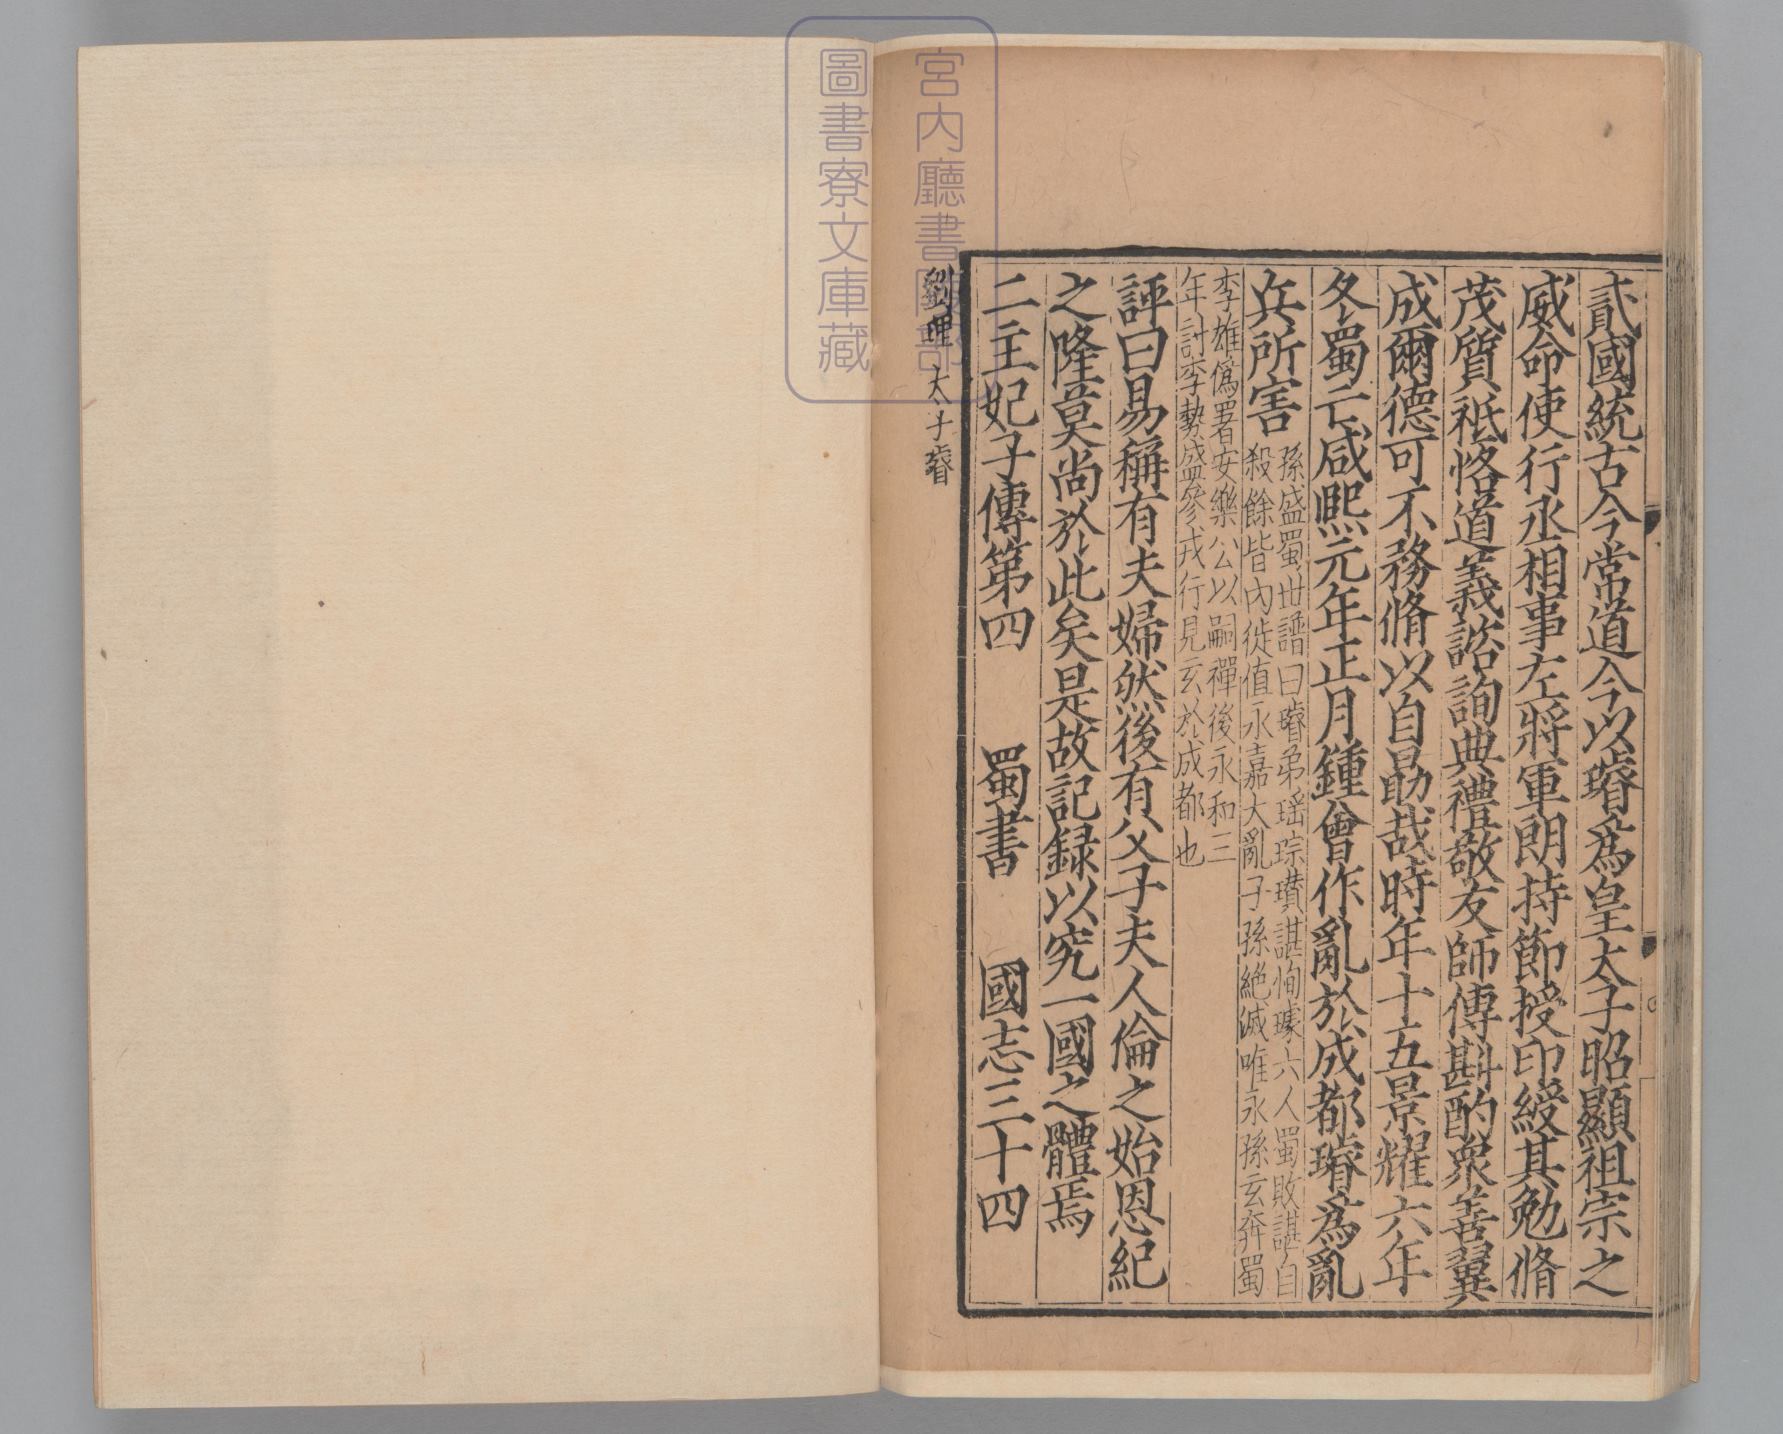 貳國統古今常道今以璿爲皇太子昭顯祖宗之
威命使行丞相事左將軍朗持節授印綬其勉脩
茂質祗恪道義諮詢典禮敬友師傅斟酌衆善翼
成爾德可不務脩以自勗哉時年十五景耀六年
冬蜀亡咸熙元年正月鍾會作亂於成都璿爲亂
兵所害
孫盛蜀世譜曰璿弟瑶琮瓚諶恂璩六人蜀敗諶自
殺餘皆內徙值永嘉大亂子孫絶滅唯永孫玄奔蜀
李雄僞署安樂公以嗣禪後永和三
年討李勢盛參戎行見玄於成都也
評曰易稱有夫婦然後有父子夫人倫之始恩紀
之隆莫尚於此矣是故記録以究一國之體焉
二主妃子傳第四 蜀書 國志三十四
劉理 太子璿
宮内廳書陵部
圖書寮文庫藏